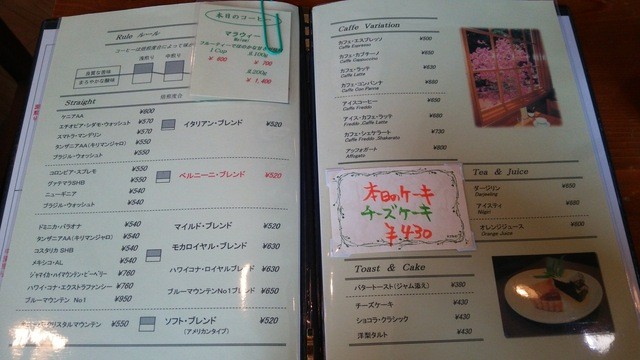 Rule ルール
本日のコーヒー
マラウィー
1 Cup
¥ 600
豆100g
¥ 700
豆200g
¥ 1,400
浅煎り
中煎り
Straight
ケニアAA ¥600
エチオピア・シダモ・ウォッシュト ¥570
スマトラ・マンデリン ¥570
タンザニアAA(キリマンジャロ) ¥550
ブラジル・ウォッシュト ¥550
イタリアン・ブレンド ¥520
コロンビア・スプレモ ¥550
グァテマラSHB ¥550
ニューギニア ¥540
ブラジル・ウォッシュト ¥540
ベルニーニ・ブレンド ¥520
ドミニカ・バラオナ ¥540
タンザニアAA(キリマンジャロ) ¥540
コスタリカ SHB ¥540
メキシコ・AL ¥540
ジャマイカ・ハイマウンテン・ピーベリー ¥760
ハワイ・コナ・エクストラファンシー ¥760
ブルーマウンテン No1 ¥950
マイルド・ブレンド ¥520
モカロイヤル・ブレンド ¥630
ハワイコナ・ロイヤルブレンド ¥630
ブルーマウンテンNo1ブレンド ¥650
クリスタルマウンテン ¥550
ソフト・ブレンド ¥520
(アメリカンタイプ)
Caffe Variation
カフェ・エスプレッソ ¥500
Caffe Espresso
カフェ・カプチーノ ¥550
Caffe Cappuccino
カフェ・ラッテ ¥630
Caffe Latte
カフェ・コンパンナ
Caffe Con Panna
アイスコーヒー
Caffe Freddo
アイス・カフェ・ラッテ
Freddo Caffe Latte
カフェ・シェケラート ¥730
Caffe Freddo Shakerato
アッフォガード
Affogato
Tea & Juice
ダージリン ¥650
Darjeeling
アイスティ ¥650
Nilgiri
オレンジジュース ¥600
Orange Juice
本日のケーキ
チーズケーキ
¥430
Toast & Cake
バタートースト(ジャム添え) ¥380
チーズケーキ ¥430
ショコラ・クラシック ¥430
洋梨タルト ¥430